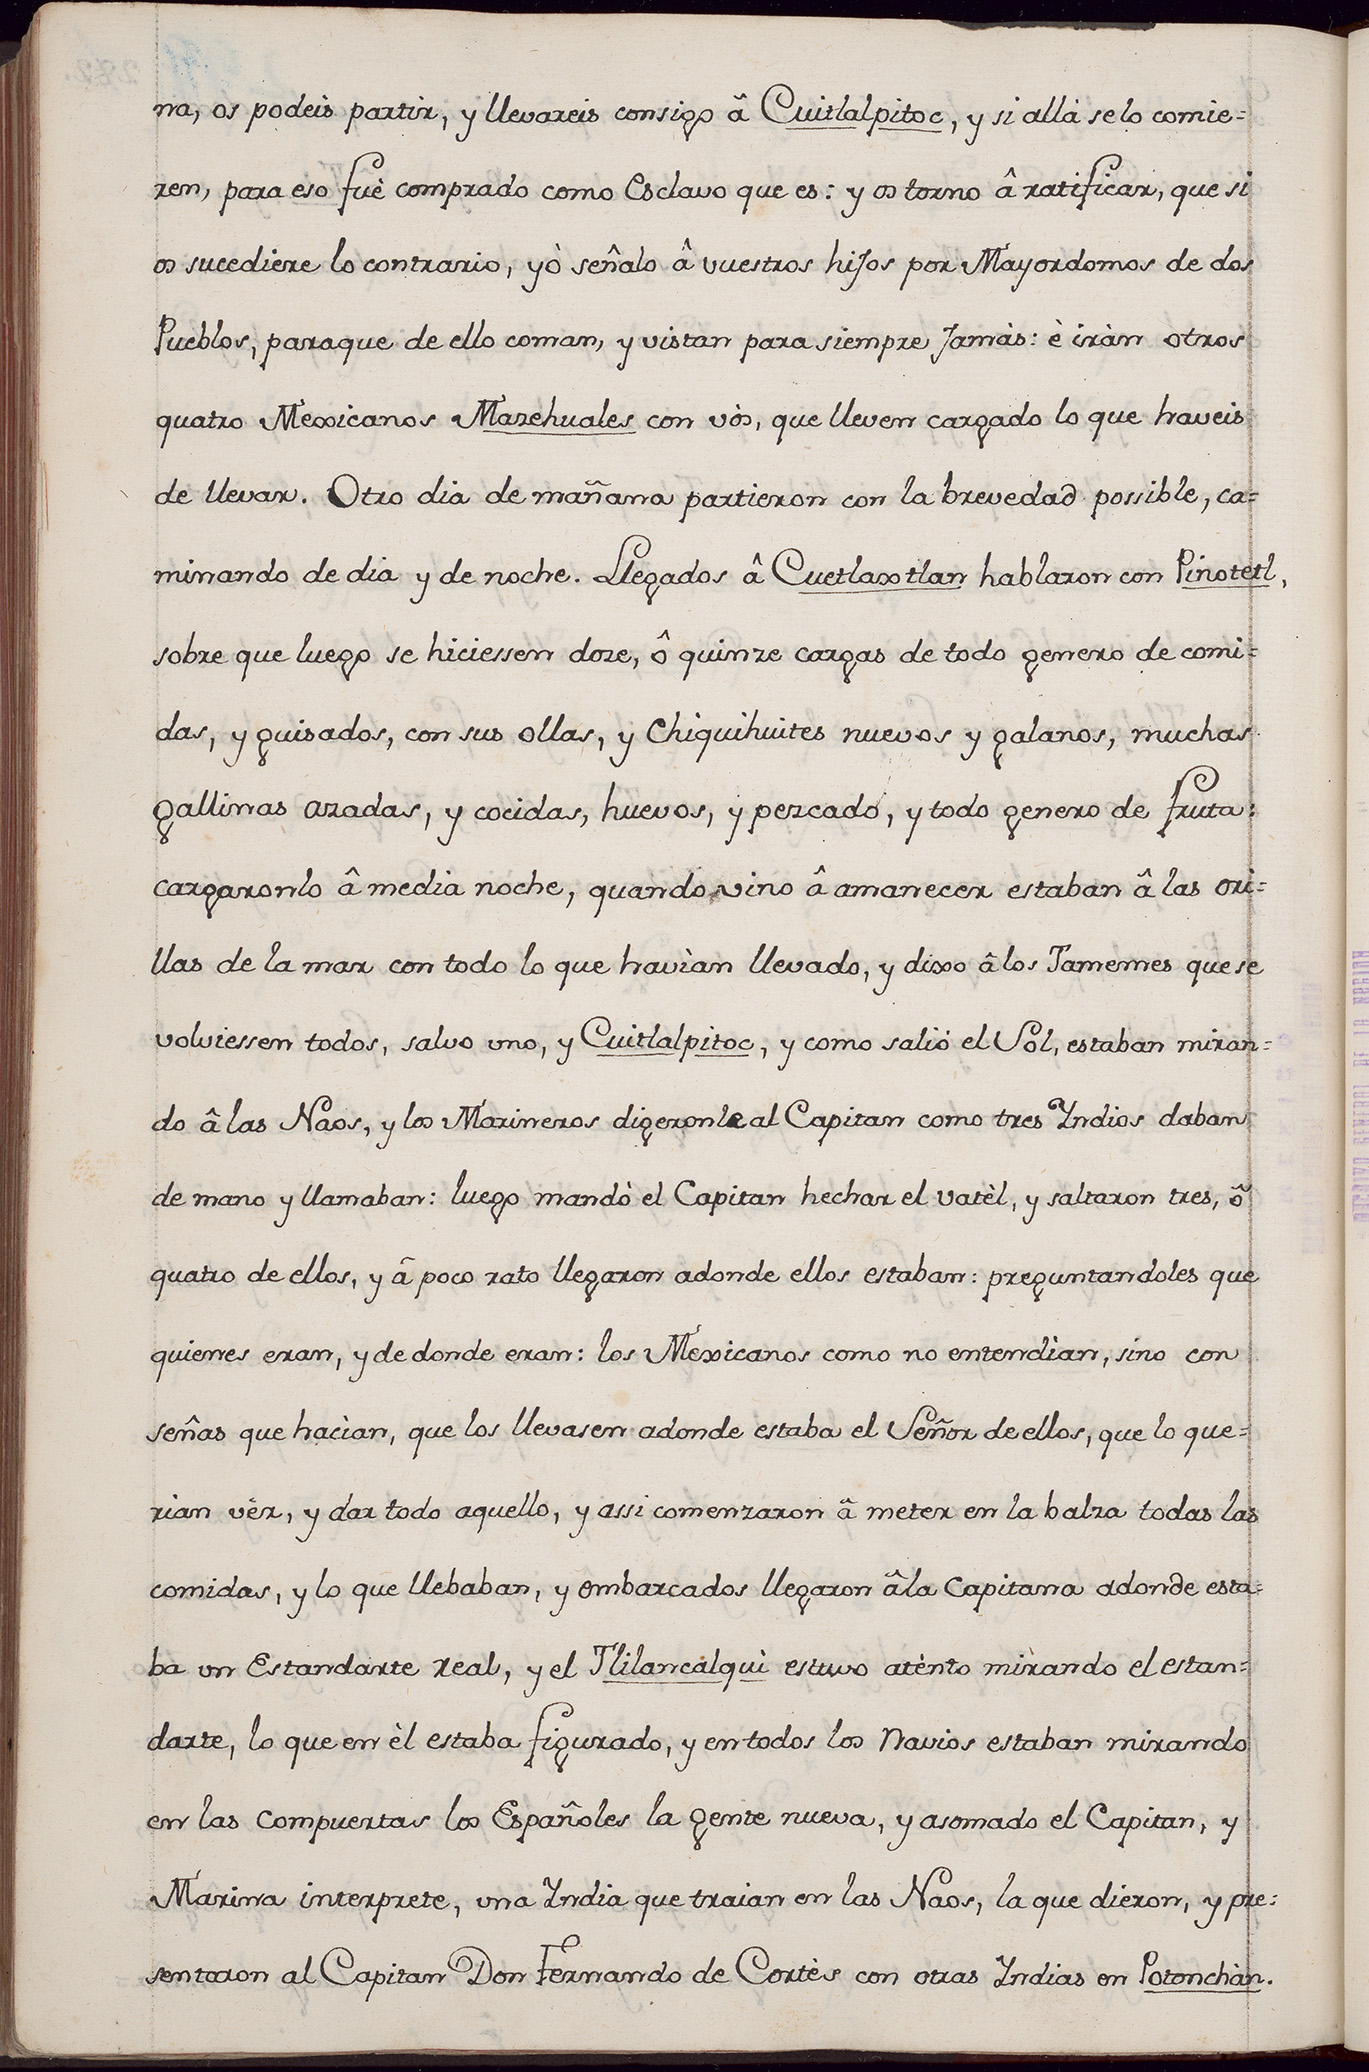 na, os podeis partir, y llevareis consigo â Cuitlalpitoc, y si allà se lo comie=
ren, para eso fuè comprado como Esclavo que es: y os torno â ratificar, que si
os sucediere lo contrario, yò señalo â vuestros hijos por Mayordomos de dos
Pueblos, paraque de ello coman, y vistan para siempre Jamàs: è iràn otros
quatro Mexicanos Mazehuales con vòs, que lleven cargado lo que haveis
de llevar. Otro dia de mañana partieron con la brevedad possible, ca=
minando de dia y de noche. Llegados â Cuetlaxtlan hablaron con Pinotetl,
sobre que luego se hiciessen doze, ô quinze cargas de todo genero de comi=
das, y guisados, con sus ollas, y Chiquihuites nuevos y galanos, muchas
gallinas azadas, y cocidas, huevos, y pezcado, y todo genero de fruta:
cargaronlo â media noche, quando vino â amanecer estaban â las ori=
llas de la mar con todo lo que havìan llevado, y dixo â los Tamemes que se
volviessen todos, salvo uno, y Cuitlalpitoc, y como salió el Sol, estaban miran=
do â las Naos, y los Marineros digeronle al Capitan como tres Yndios daban
de mano y llamaban: luego mandò el Capitan hechar el vatèl, y saltaron tres, ô
quatro de ellos, y â poco rato llegaron adonde ellos estaban: preguntandoles que
quienes eran, y de donde eran: los Mexicanos como no entendìan, sino con
señas que hacìan, que los llevasen adonde estaba el Señor de ellos, que lo que=
rian vèr, y dar todo aquello, y assi comenzaron â meter en la balza todas las
comidas, y lo que llebaban, y embarcados llegaron â la Capitana adonde esta=
ba un Estandarte real, y el Tlilancalquì estuvo atènto mirando el estan=
darte, lo que en èl estaba figurado, y en todos los Navios estaban mirando
en las compuertas los Españoles la gente nueva, y asomado el Capitan, y
Marina interprete, una Yndia que traian en las Naos, la que dieron, y pre=
sentaron al Capitan Don Fernando de Cortès con otras Yndias en Potonchàn.